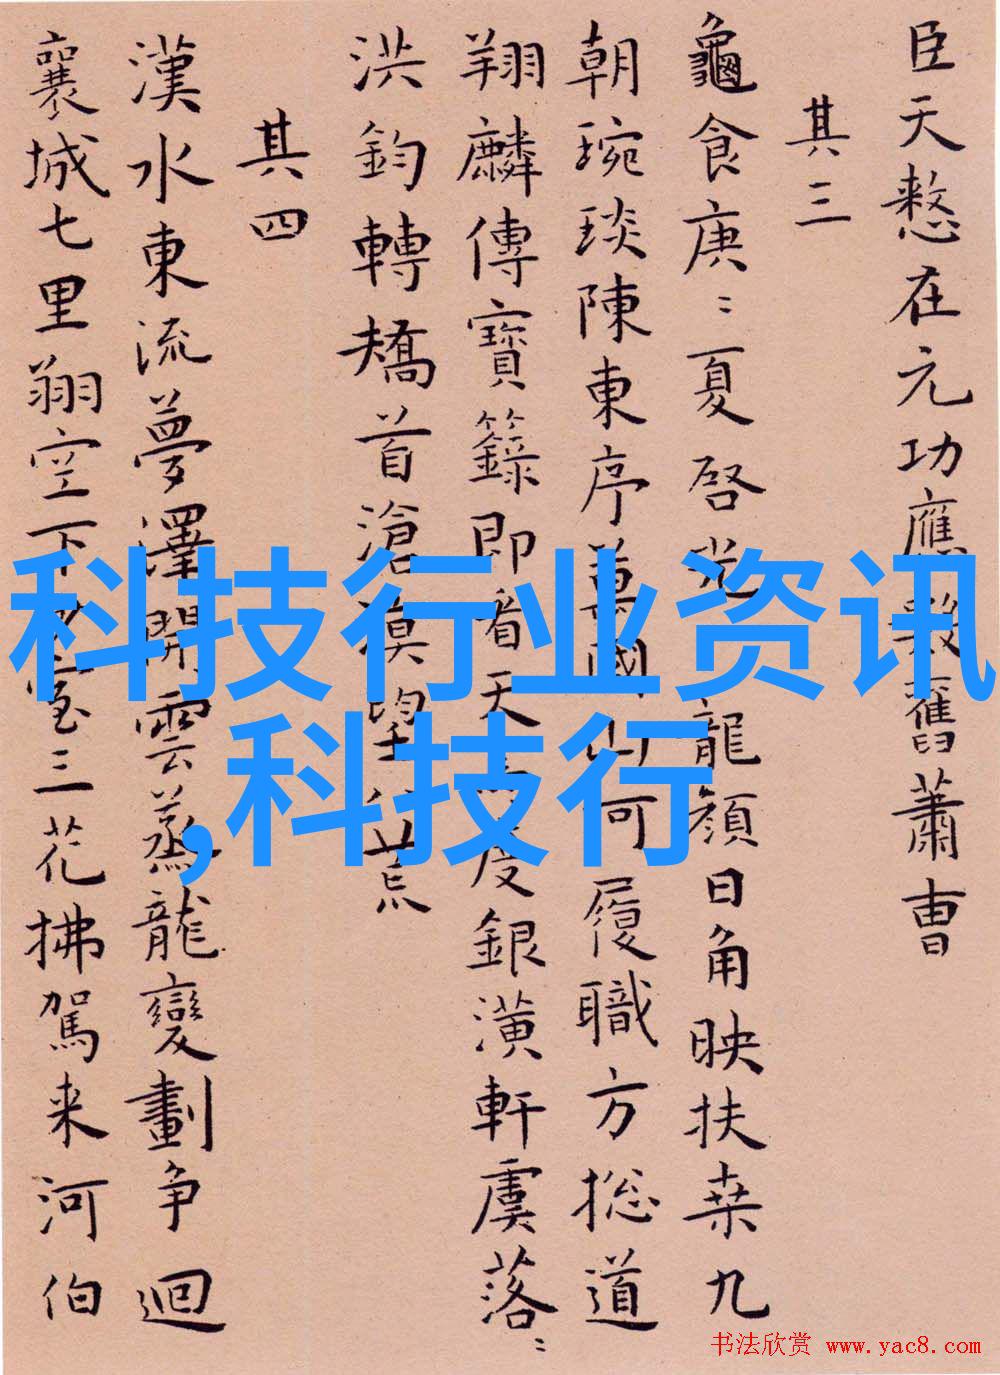 臣天憖在元功應數舊蕭曹
其三
龜食庚﹦夏啓光龍顏日角映扶桒九
朝琬琰陳東序萬國山河履職方捴道
翔麟傳寶籙即看天度銀潢軒虞落﹦
洪鈞轉矯首滄溟望八荒
其四
漢水東流夢澤開雲蒸龍變劃争迴
襄城七里翔空下室三花拂駕来河伯
科技行业资讯
,科技行
书法欣赏 www.yac8.com